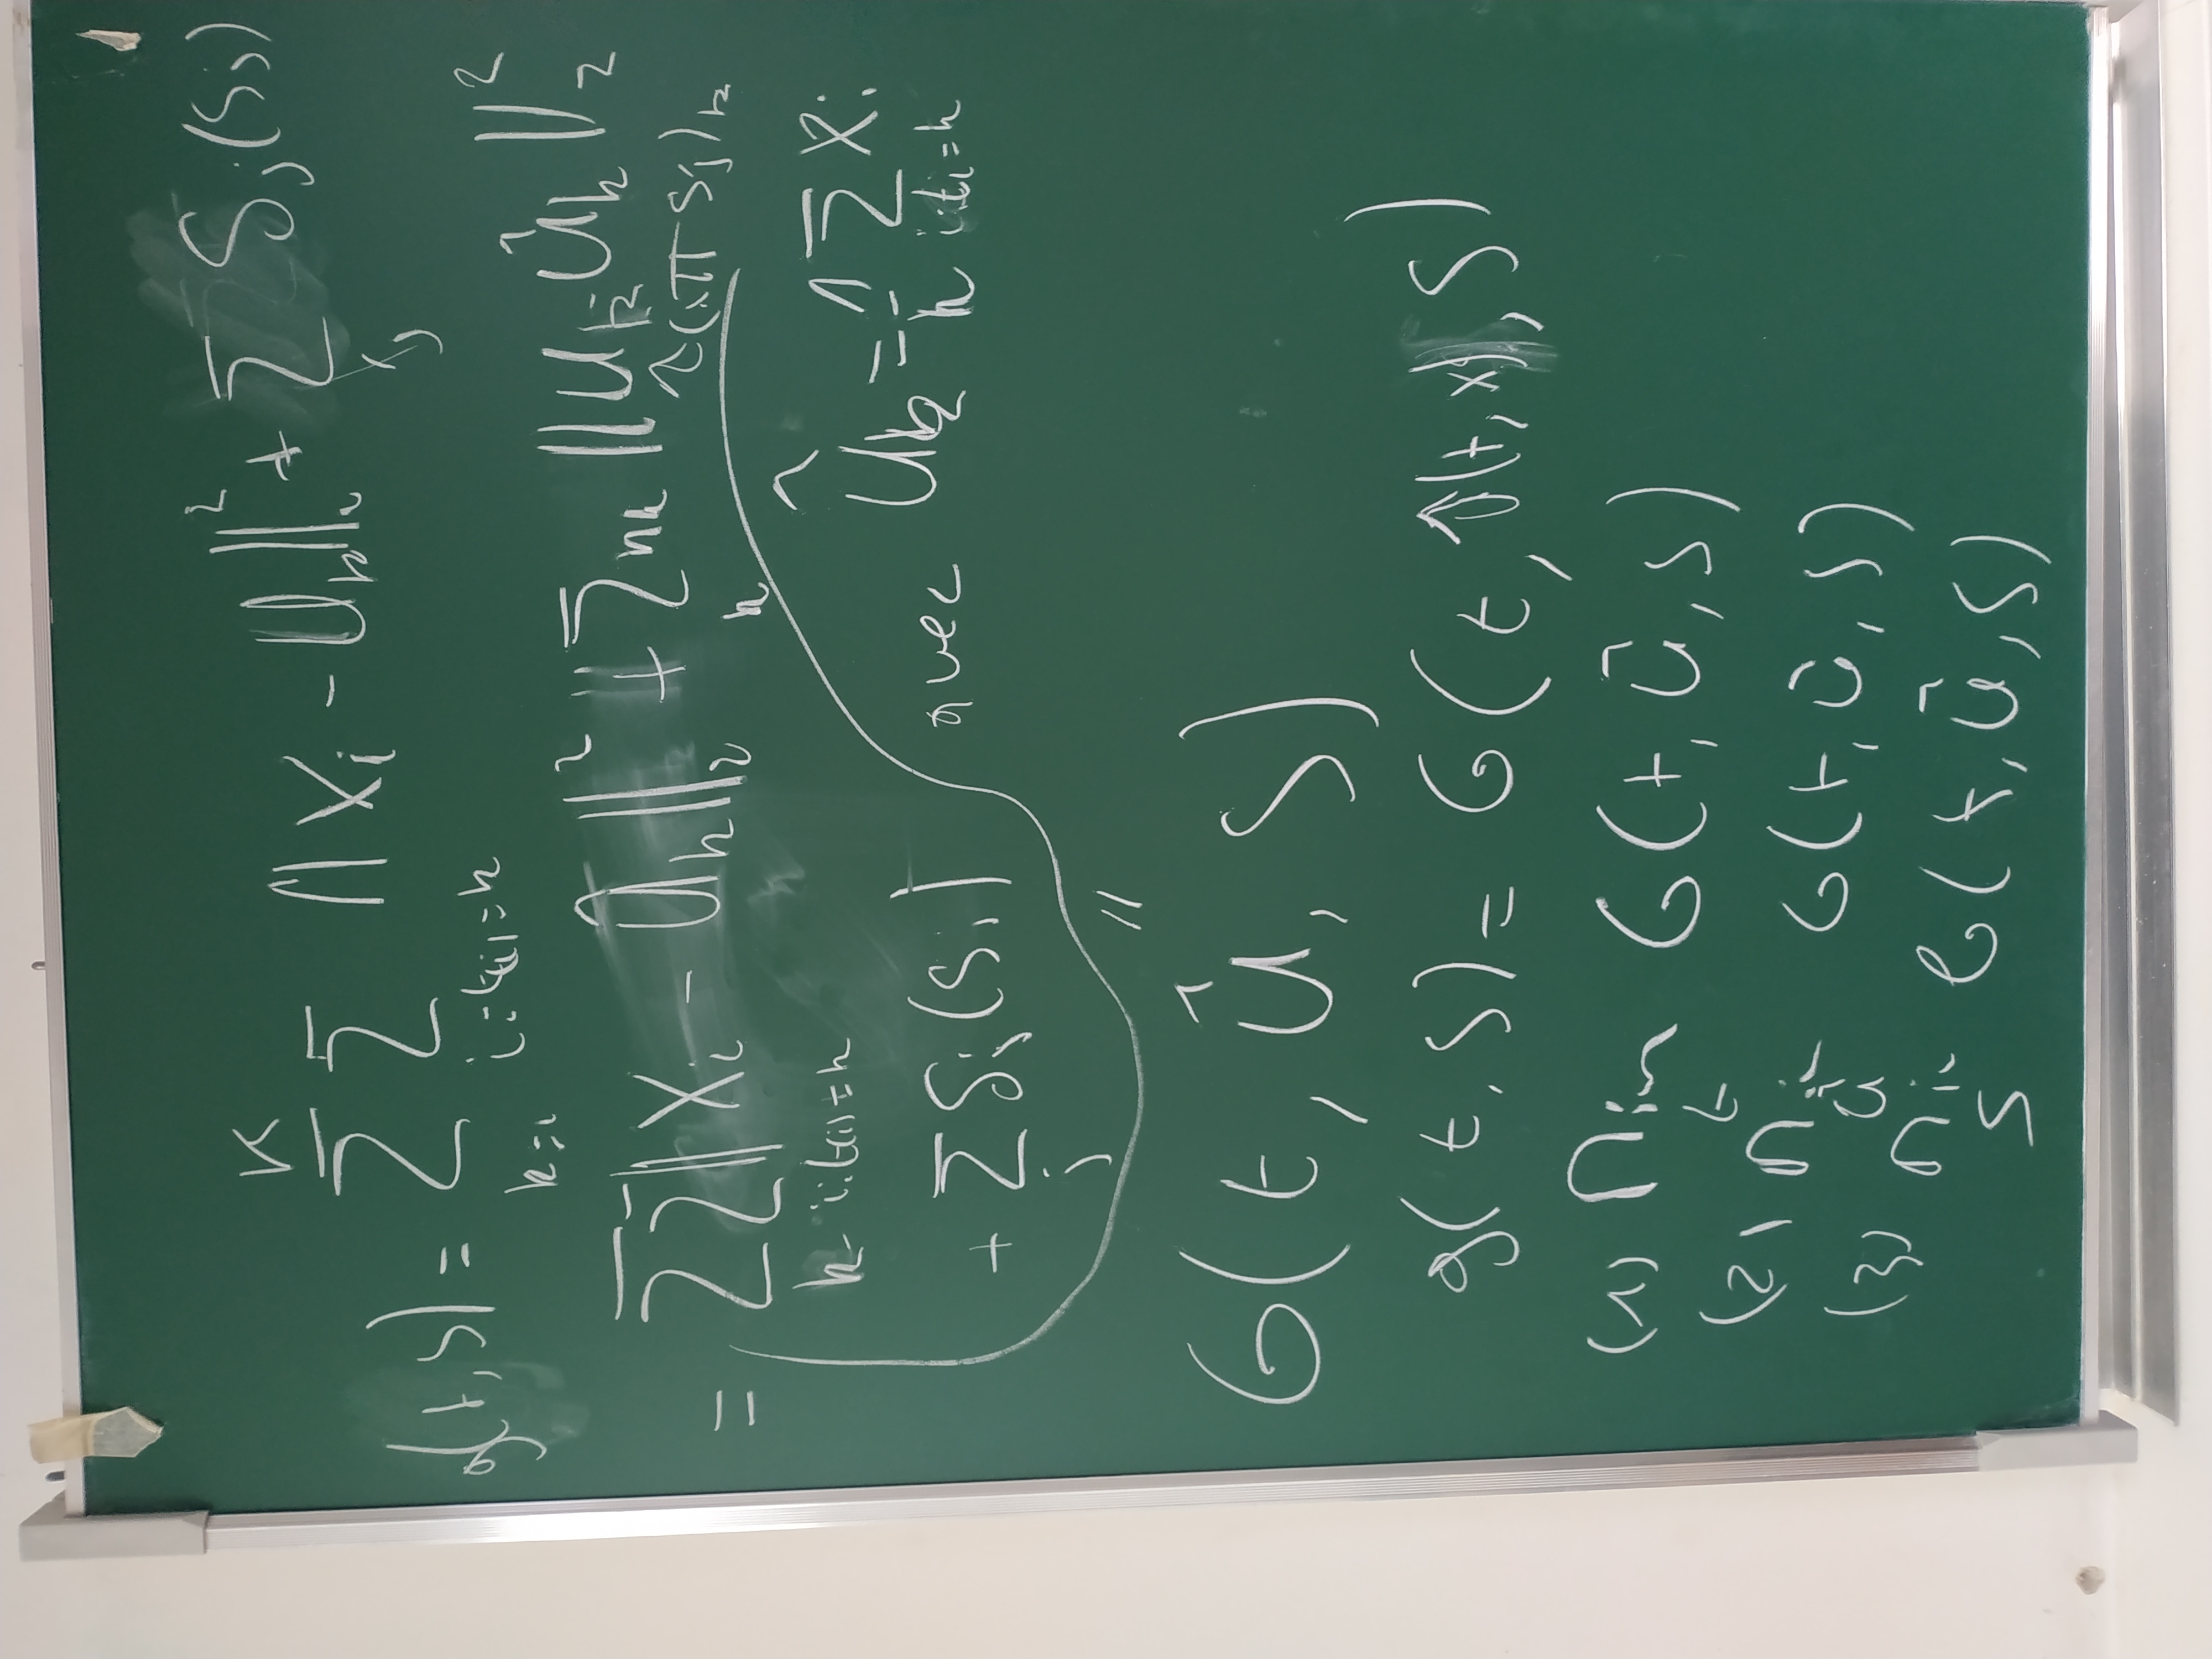 g(t,s) = \sum_{k=1}^{K} \sum_{i:t(i)=k} || X_i - U_k ||_2^2 + \sum_j S_j(s_j)
= \sum_k \sum_{i:t(i)=k} || X_i - \hat{U}_k ||_2^2 + \sum_k n_k || U_k - \hat{U}_k ||_2^2
(\pi s_j)_k
+ \sum_j S_j(s_j) avec \hat{U}_k = \frac{1}{n} \sum_{i:t_i=k} X_i
=
G(t, \hat{U}, S)
g(t,S) = G(t, \hat{U}(t,x), S)
(1) Min_t G(t, \hat{U}, s)
(2) Min_{\hat{U}} G(t, \hat{U}, s)
(3) Min_s G(t, \hat{U}, s)